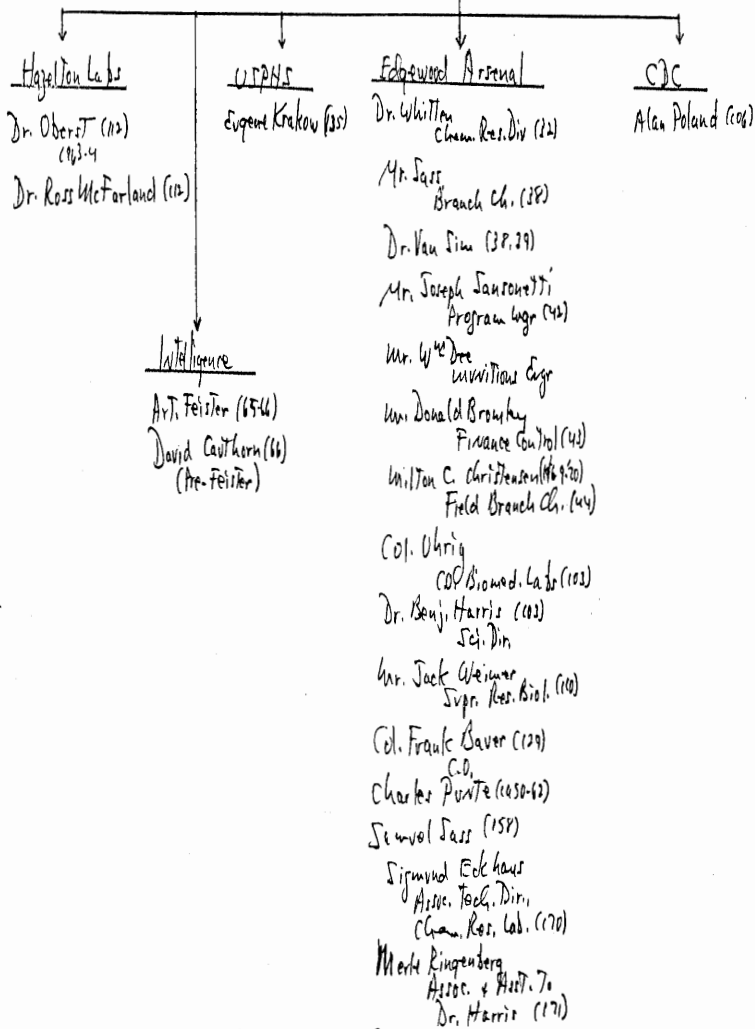 Hazelton Labs
Dr. Oberst (112)
1963-4
Dr. Ross McFarland (112)
Intelligence
Art. Feister (65-66)
David Cauthorn (66)
(Pre-Feister)
USPHS
Eugene Krakow (135)
Edgewood Arsenal
Dr. Whitten
Chem. Res. Div (32)
Mr. Sass
Branch Ch. (38)
Dr. Van Sim (38, 39)
Mr. Joseph Sansonetti
Program Mgr (42)
Mr. Wm Dee
Munitions Engr
Mr. Donald Bromley
Finance Control (43)
Milton C. Christensen
Field Branch Ch. (44)
Col. Uhrig
Biomed. Labs (103)
Dr. Benj. Harris (103)
Sci. Dir.
Mr. Jack Weimer
Supr. Res. Biol. (110)
Col. Frank Bauer (129)
C.O.
Charles Punte (1950-62)
Samuel Sass (158)
Sigmund Eckhaus
Assoc. Tech. Dir.,
Chem. Res. Lab. (170)
Merle Ringenberg
Assoc. + Asst. To
Dr. Harris (171)
CDC
Alan Poland (106)